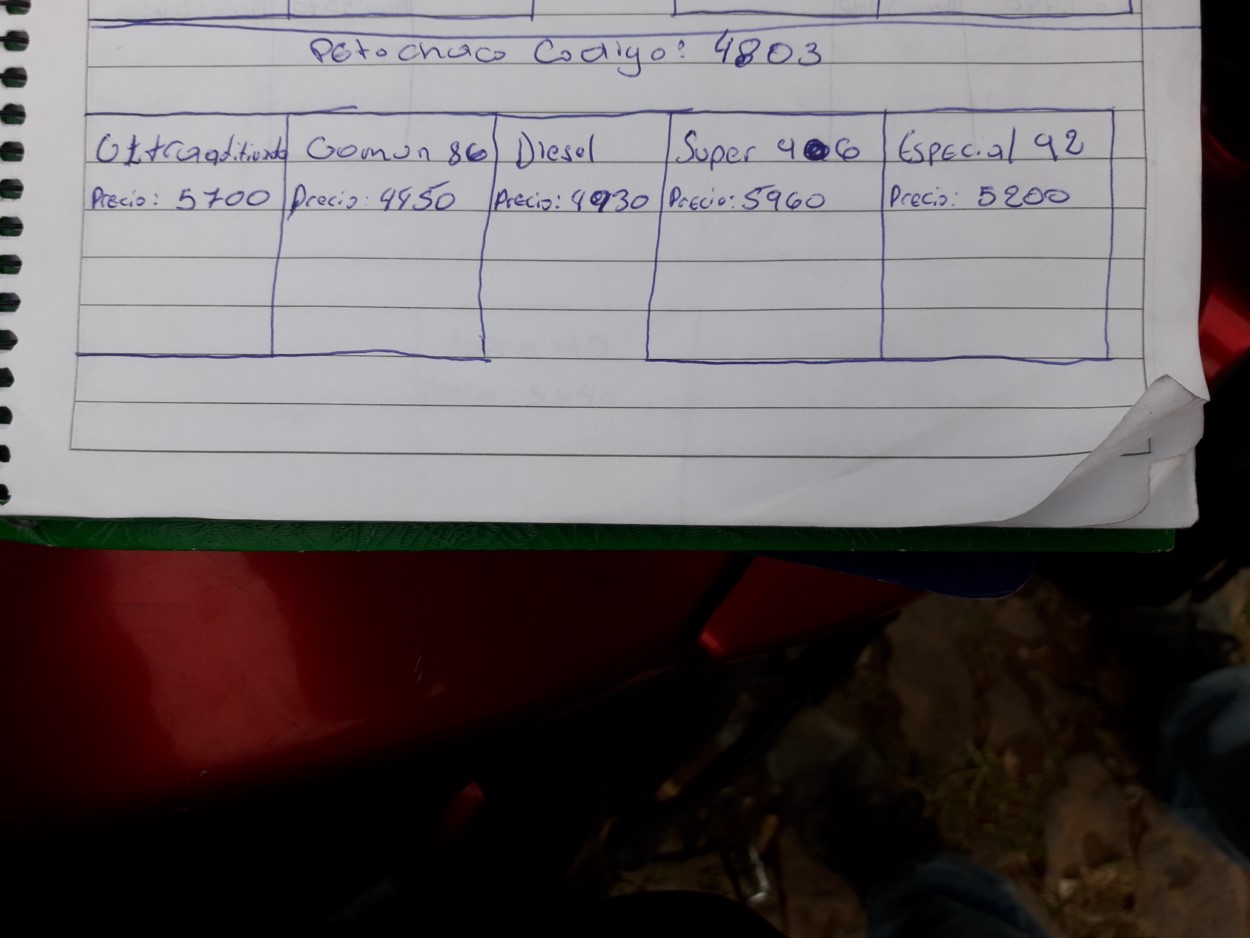 Petochaco Codigo: 4803
Comun 86
Diesel
Especial 92
Precio: 5700
Precio: 4450
Precio: 4930
Precio: 5960
Precio: 5200
Super